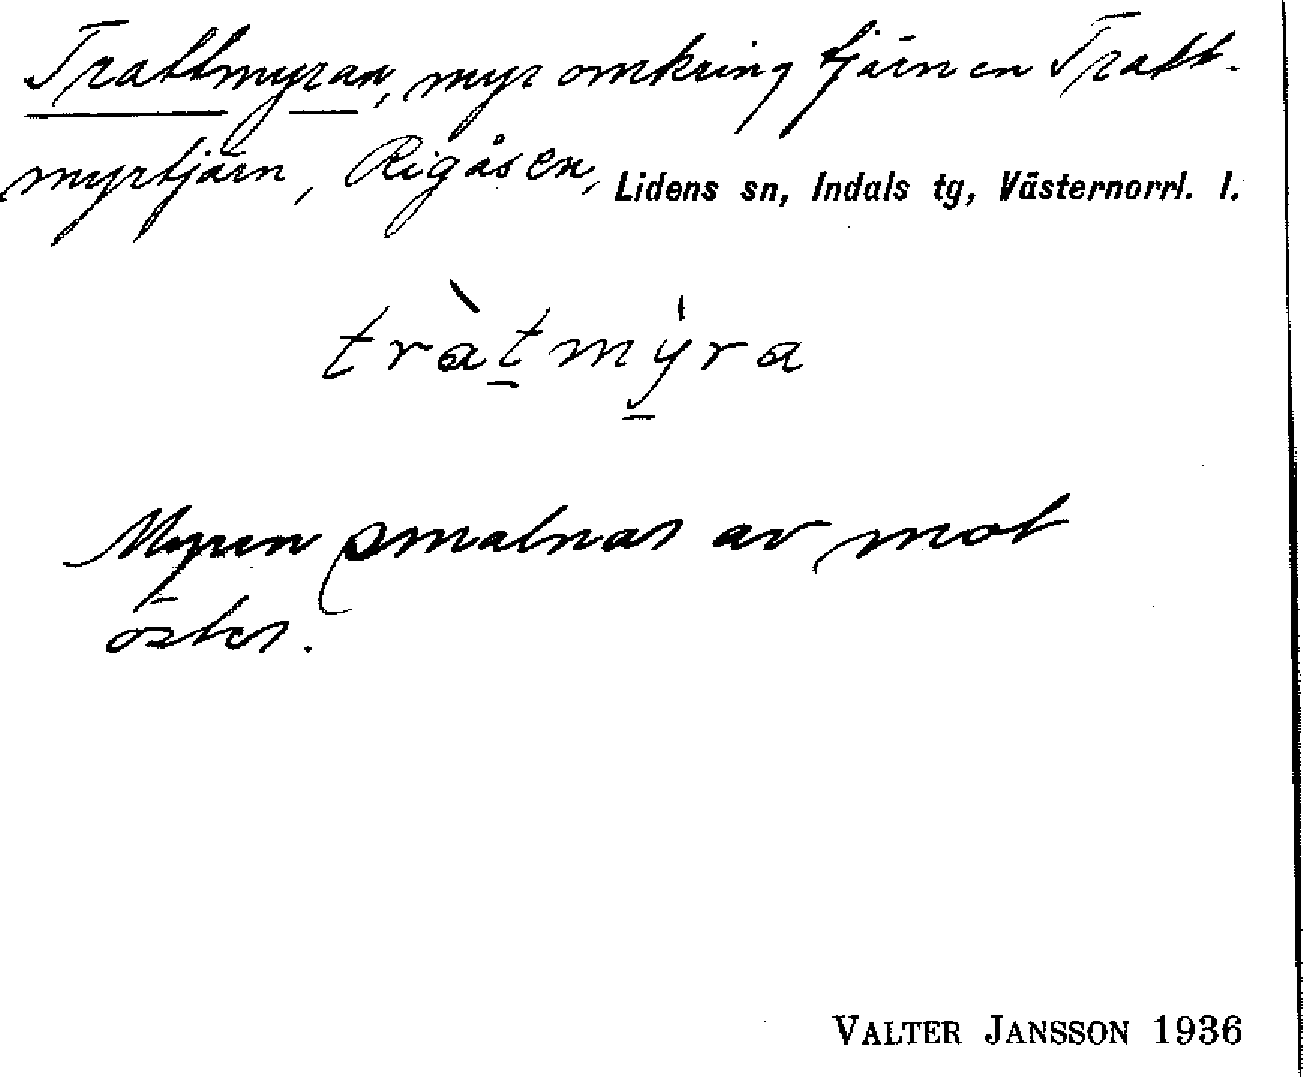 Trattmyran, myr omkring tjärnen Tratt-
myrtjärn, Rigåsen, Lidens sn, Indals tg, Västernorrl. l.
tràt̲mý̲ra
Myren smalnar av mot
öster.
VALTER JANSSON 1936